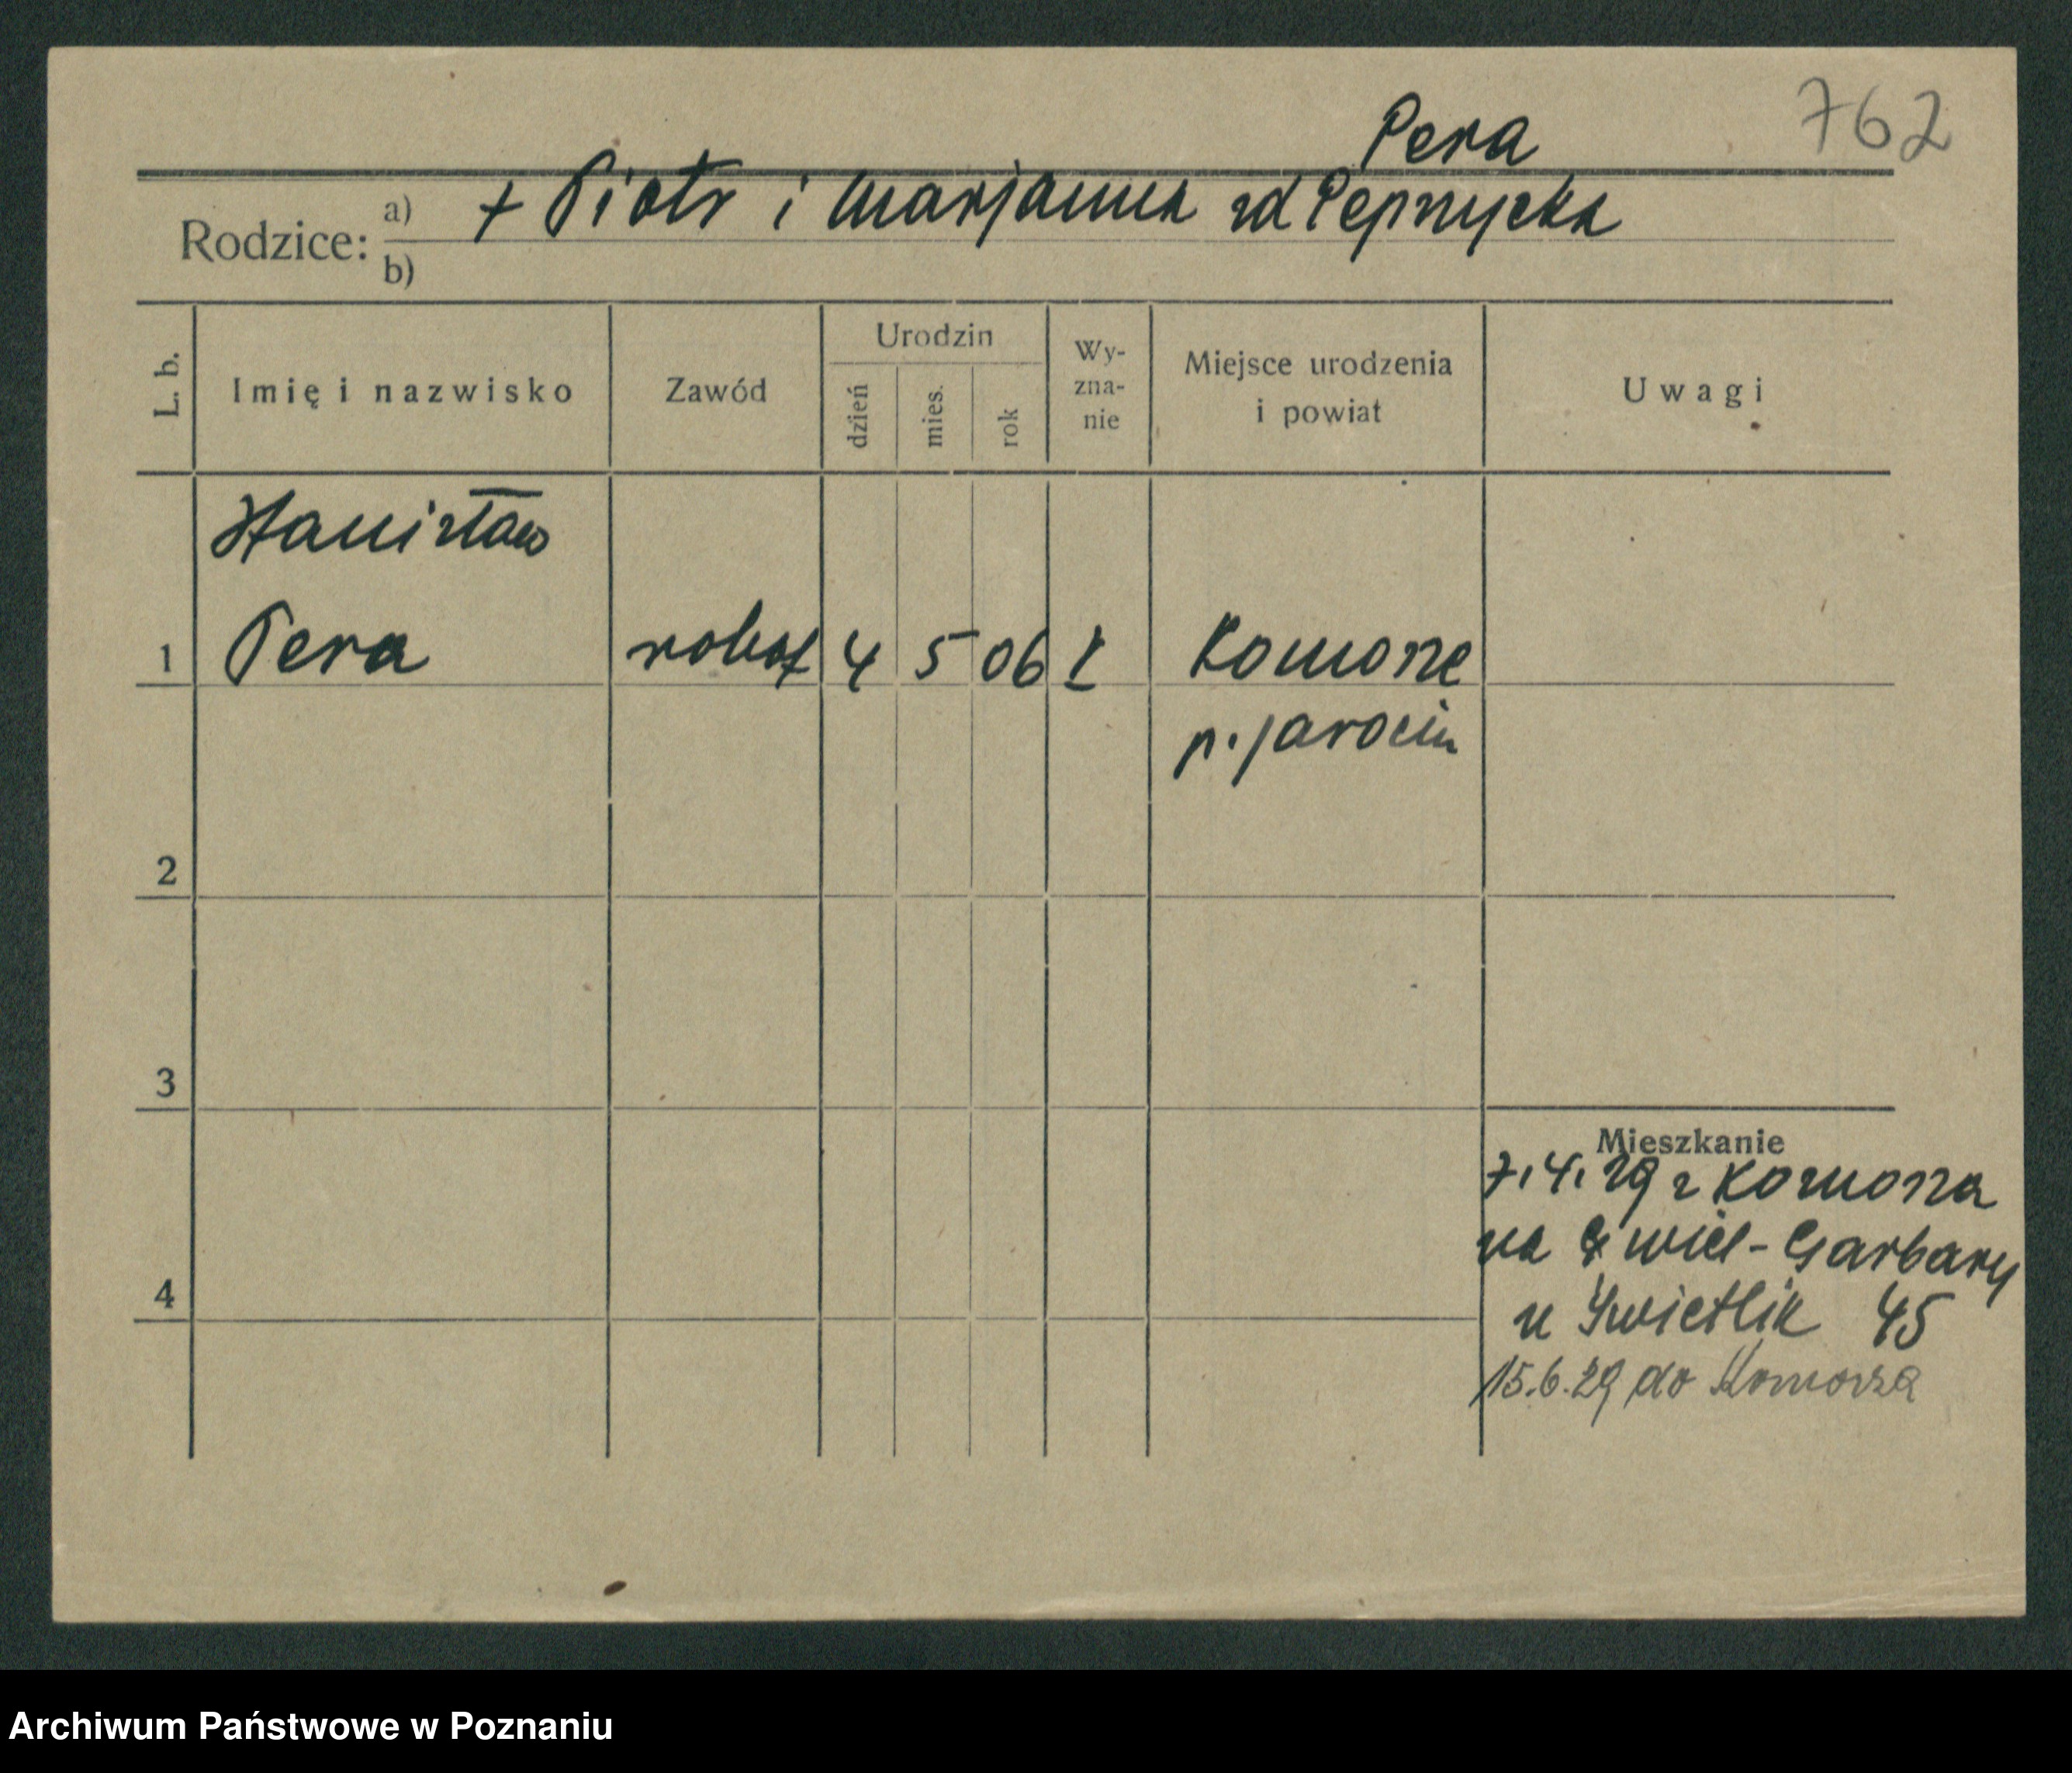 762
Pera
Rodzice: a) + Piotr i Marjanna zd Pepnycka
b)
L. b. Imię i nazwisko Zawód Urodzin dzień mies. rok Wy-zna-nie Miejsce urodzenia i powiat Uwagi
Stanisław
1 Pera robot 4 5 06 k Komorze
p. Jarocin
2
3
Mieszkanie
7.4.29 z Komorza
na wiel-Garbary
4
u Swietlik 45
15.6.29 do Komorza
Archiwum Państwowe w Poznaniu